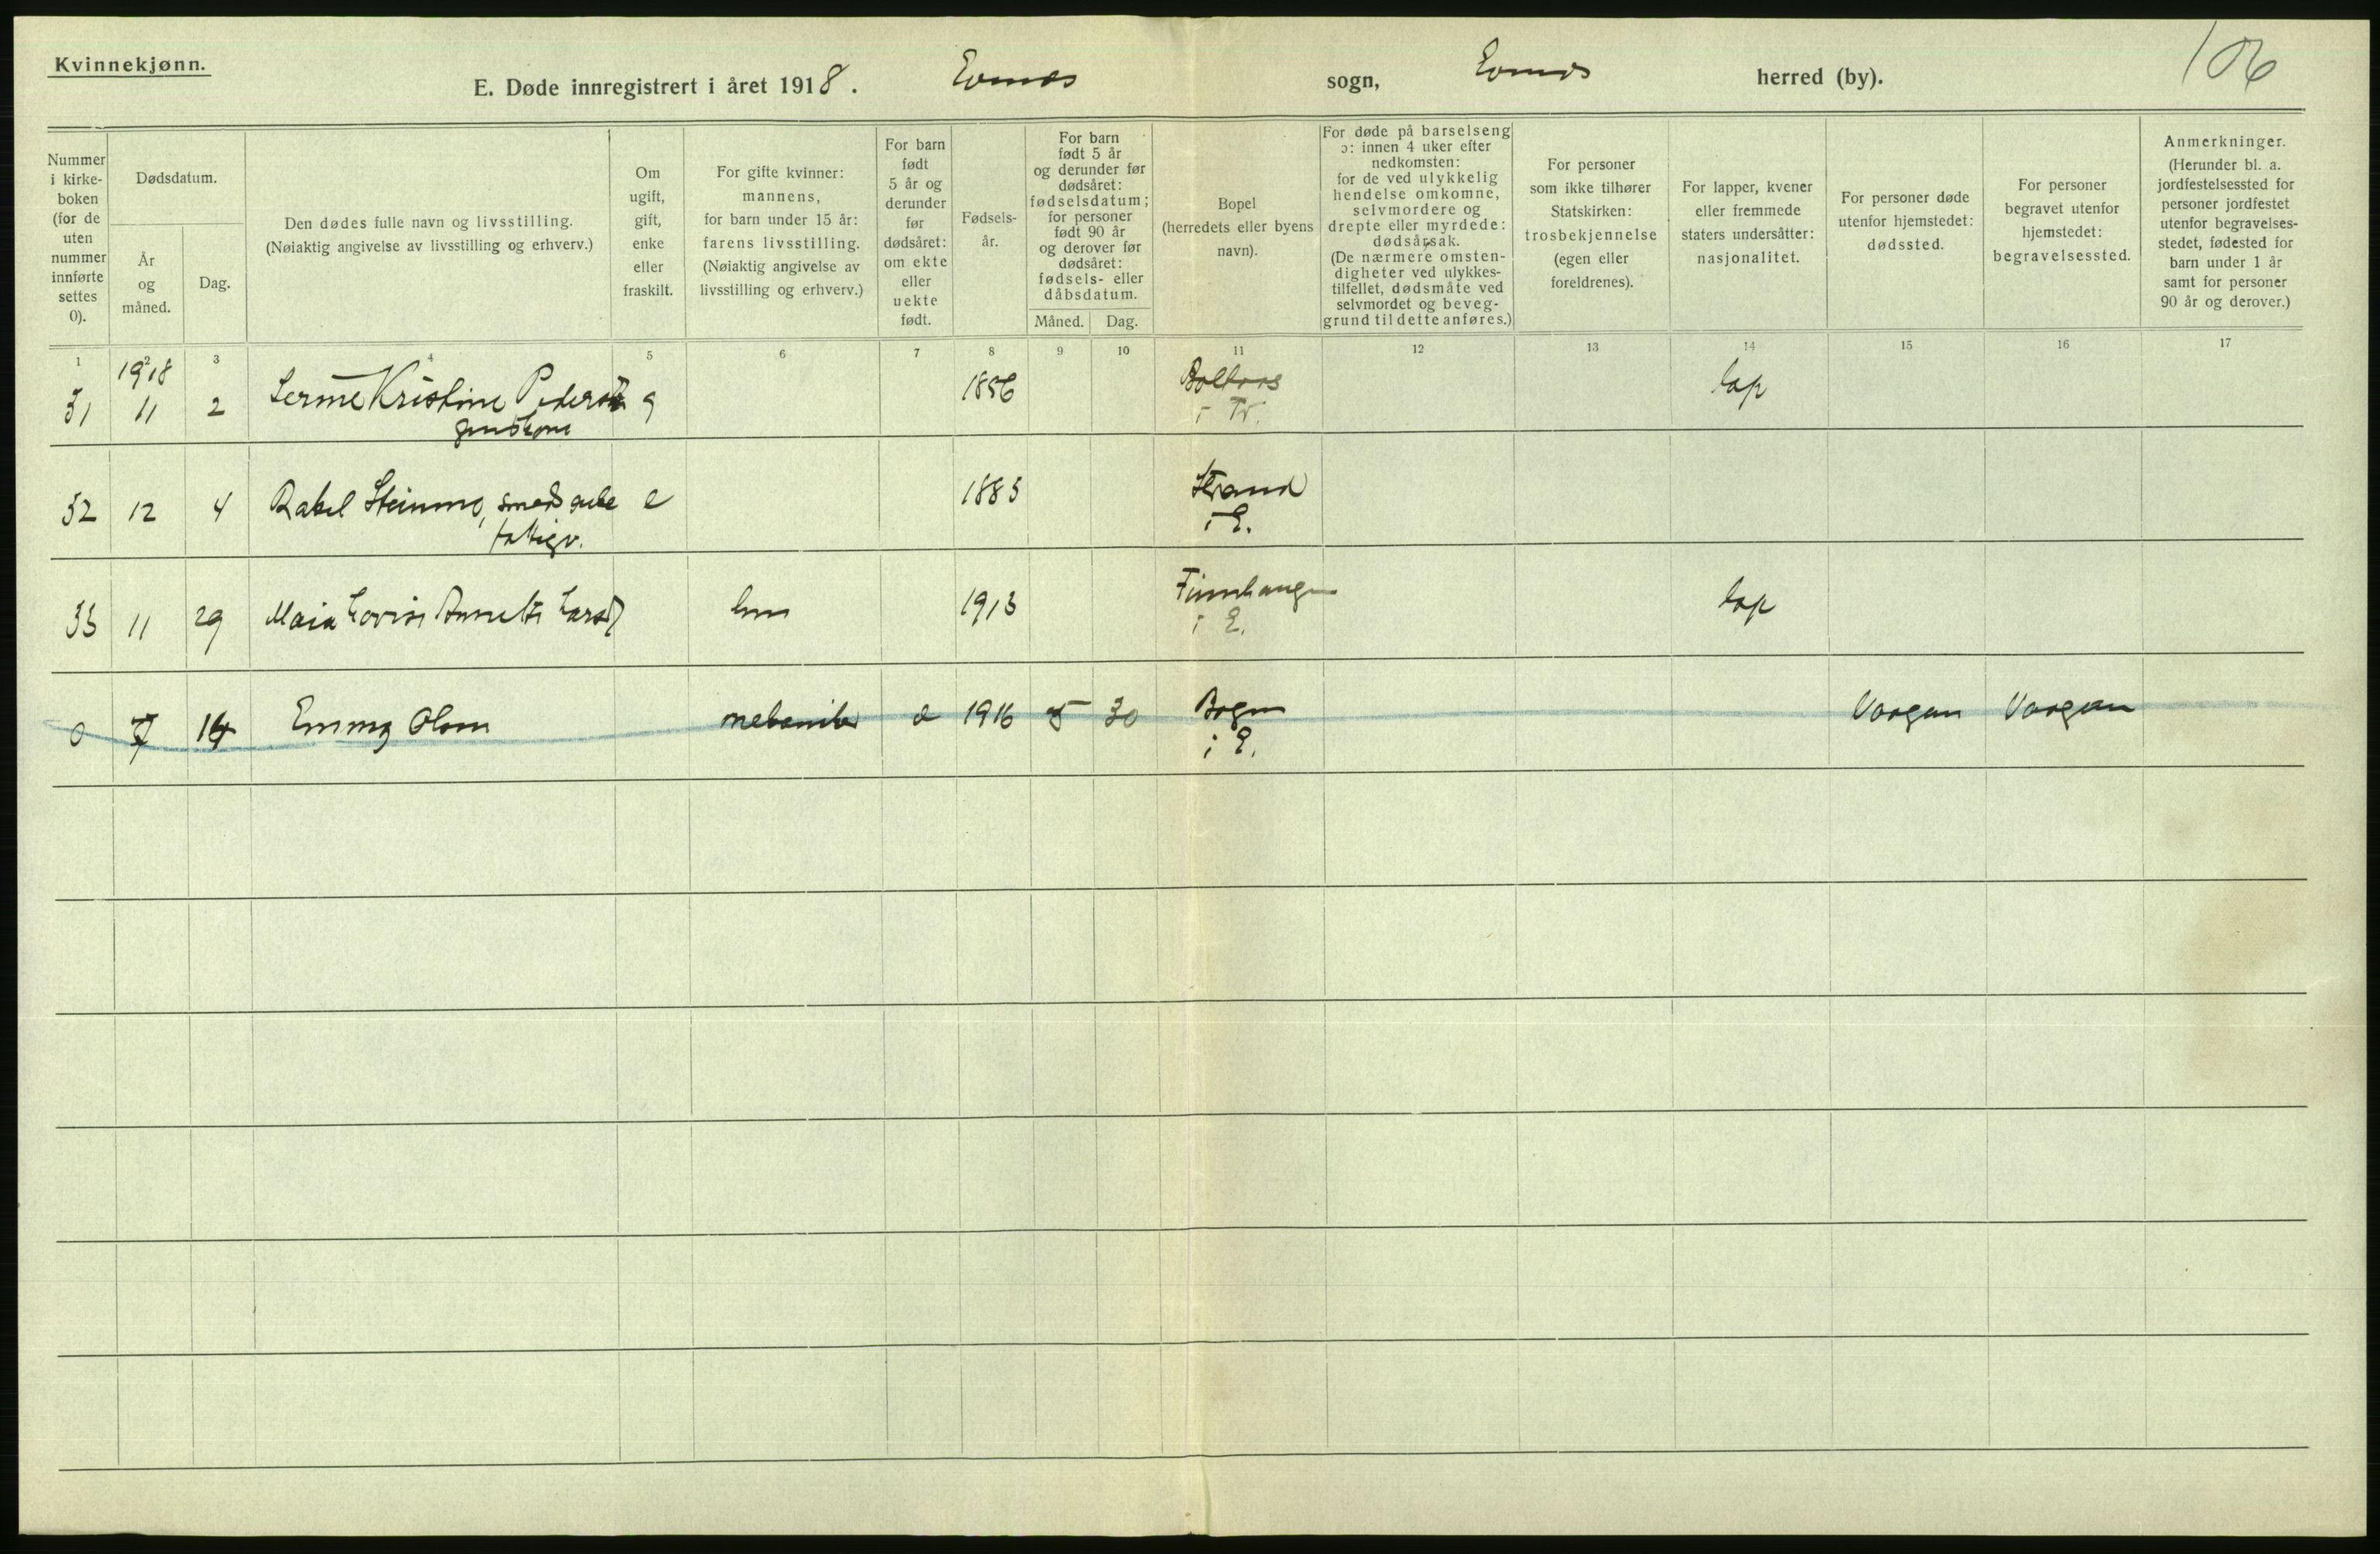 Kvinnekjønn.
E. Døde innregistrert i året 1918. Evenes sogn, Evenes herred (by).
106
Nummer i kirke-boken (for de uten nummer innførte settes 0).
Dødsdatum.
År og måned.
Dag.
Den dødes fulle navn og livsstilling. (Nøiaktig angivelse av livsstilling og erhverv.)
Om ugift, gift, enke eller fraskilt.
For gifte kvinner: mannens, for barn under 15 år: farens livsstilling. (Nøiaktig angivelse av livsstilling og erhverv.)
For barn født 5 år og derunder før dødsåret: om ekte eller uekte født.
Fødsels-år.
For barn født 5 år og derunder før dødsåret: fødselsdatum; for personer født 90 år og derover før dødsåret: fødsels- eller dåbsdatum.
Måned. Dag.
Bopel (herredets eller byens navn).
For døde på barselseng ɔ: innen 4 uker efter nedkomsten: for de ved ulykkelig hendelse omkomne, selvmordere og drepte eller myrdede: dødsårsak. (De nærmere omsten-digheter ved ulykkes-tilfellet, dødsmåte ved selvmordet og beveg-grund til dette anføres.)
For personer som ikke tilhører Statskirken: trosbekjennelse (egen eller foreldrenes).
For lapper, kvener eller fremmede staters undersåtter: nasjonalitet.
For personer døde utenfor hjemstedet: dødssted.
For personer begravet utenfor hjemstedet: begravelsessted.
Anmerkninger. (Herunder bl. a. jordfestelsessted for personer jordfestet utenfor begravelses-stedet, fødested for barn under 1 år samt for personer 90 år og derover.)
1 2 3 4 5 6 7 8 9 10 11 12 13 14 15 16 17
1918
31 11 2 Kristine g 1856 i Tr. lap
32 12 4 Rakel e 1885 Strand
fattigv. i E.
33 11 29 1913 lap
i E.
0 7 14 Emma Olsen mekaniker e 1916 5 30 Bogen Vaagan Vaagan
i E.